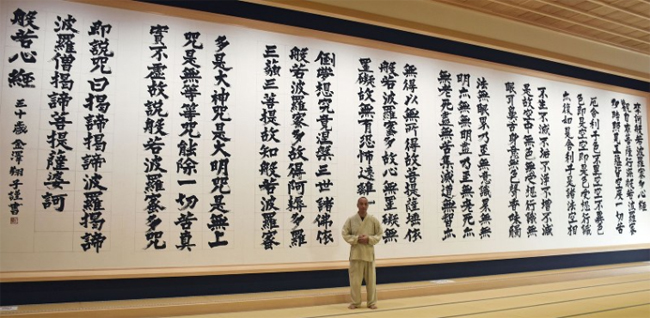 摩訶般若波羅蜜多心経
観自在菩薩行深般若波羅蜜
多時照見五蘊皆空度一切苦
厄舎利子色不異空空不異色
色即是空空即是色受想行識
亦復如是舎利子是諸法空相
不生不滅不垢不浄不増不減
是故空中無色無受想行識無
眼耳鼻舌身意無色声香味觸
法無眼界乃至無意識界無無
明亦無無明盡乃至無老死亦
無老死盡無苦集滅道無智亦
無得以無所得故菩提薩埵依
般若波羅蜜多故心無罣礙無
罣礙故無有恐怖遠離
倒夢想究竟涅槃三世諸佛依
般若波羅蜜多故得阿耨多羅
三藐三菩提故知般若波羅蜜
多是大神咒是大明咒是無上
咒是無等等咒能除一切苦真
實不虚故説般若波羅蜜多咒
即説咒曰揭諦揭諦波羅揭諦
波羅僧揭諦菩提薩婆訶
般若心經
三十歳 金澤翔子謹書